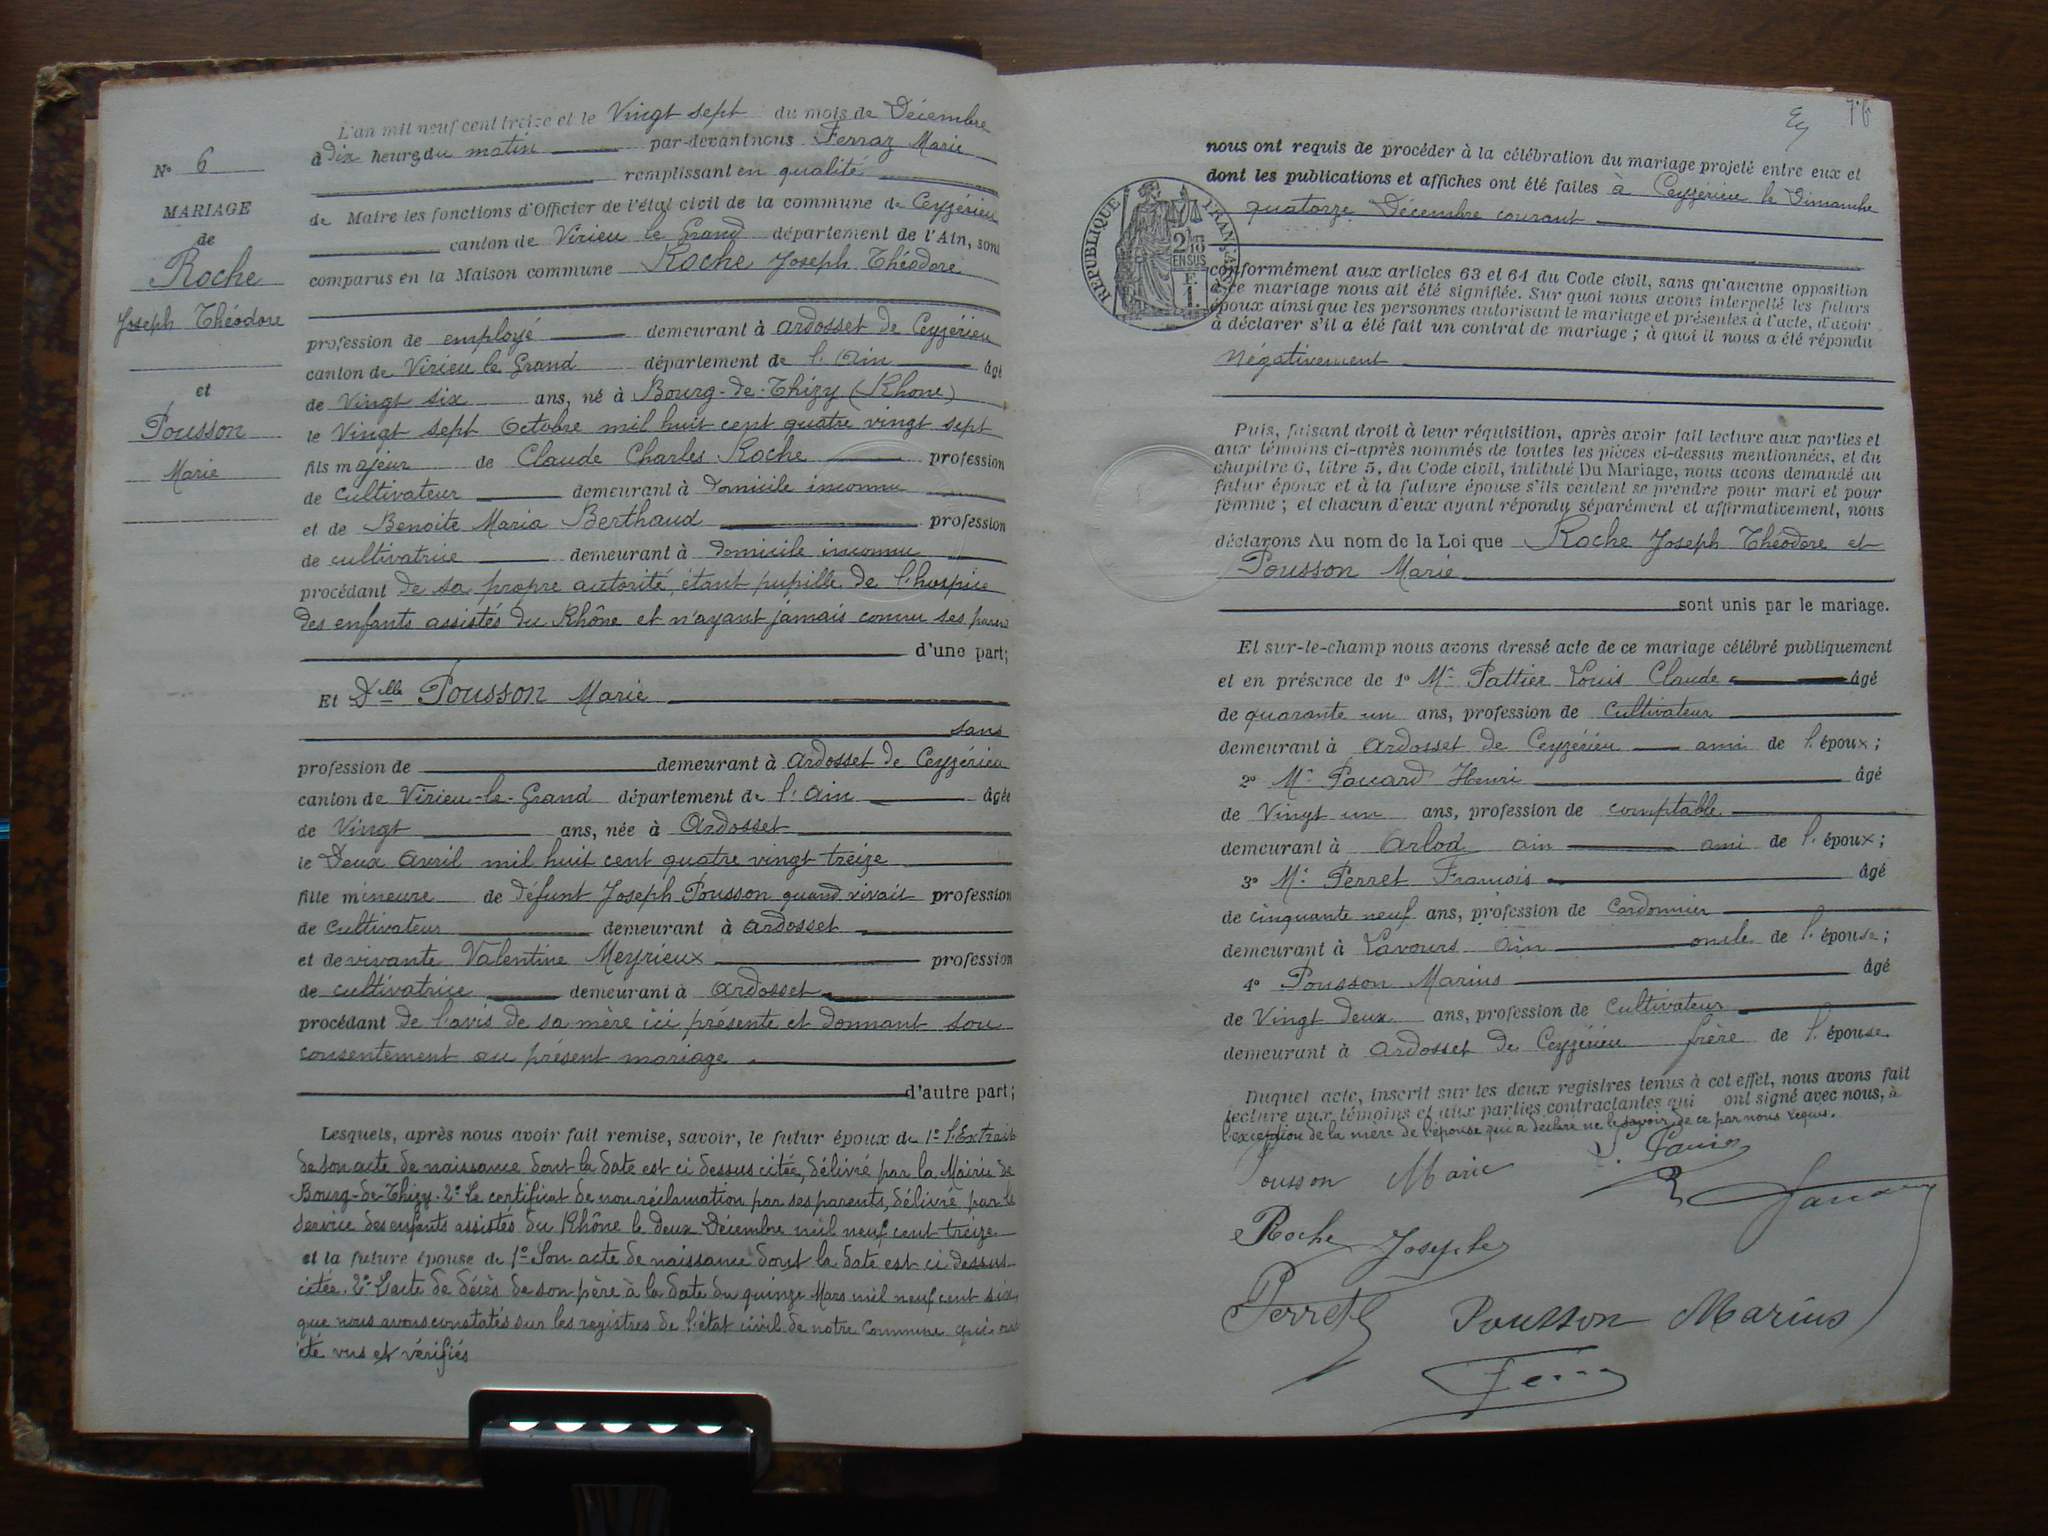 N° 6
MARIAGE
de
Roche
Joseph Théodore
et
Pousson
Marie
L'an mil neuf cent treize et le Vingt sept du mois de Décembre
à Dix heures du matin par-devant nous Ferraz Marie
remplissant en qualité
de Maire les fonctions d'Officier de l'état civil de la commune de Ceyzérieu
canton de Virieu le Grand département de l'Ain, sont
comparus en la Maison commune Roche Joseph Théodore
profession de employé demeurant à Ardosset de Ceyzérieu
canton de Virieu le Grand département de l'Ain âgé
de Vingt six ans, né à Bourg-de-Thizy (Rhone)
le Vingt sept Octobre mil huit cent quatre vingt sept
fils majeur de Claude Charles Roche profession
de cultivateur demeurant à Domicile inconnu
et de Benoite Maria Berthaud profession
de cultivatrice demeurant à Domicile inconnu
procédant de sa propre autorité, étant pupille de l'hospice
des enfants assistés du Rhône et n'ayant jamais connu ses parents
d'une part;
Et Delle Pousson Marie
sans
profession de demeurant à Ardosset de Ceyzérieu
canton de Virieu-le-Grand département de l'Ain âgée
de Vingt ans, née à Ardosset
le Deux avril mil huit cent quatre vingt treize
fille mineure de défunt Joseph Pousson quand vivait profession
de cultivateur demeurant à Ardosset
et de vivante Valentine Meyrieux profession
de cultivatrice demeurant à Ardosset
procédant de l'avis de sa mère ici présente et donnant son
consentement au présent mariage.
d'autre part;
Lesquels, après nous avoir fait remise, savoir, le futur époux de 1° l'Extrait
de son acte de naissance dont la date est ci dessus citée, délivré par la Mairie de
Bourg-de-Thizy. 2° Le certificat de non réclamation par ses parents, délivré par le
service des enfants assistés du Rhône le deux Décembre mil neuf cent treize
et la future épouse de 1° Son acte de naissance dont la date est ci dessus
citée. 2° L'acte de décès de son père à la date du quinze Mars mil neuf cent six,
que nous avons constatés sur les registres de l'état civil de notre commune qui ont
été vus et vérifiés
76
nous ont requis de procéder à la célébration du mariage projeté entre eux et
dont les publications et affiches ont été faites à Ceyzérieu le Dimanche
quatorze Décembre courant
RÉPUBLIQUE FRANÇAISE
2/10 EN SUS
F. 1.
conformément aux articles 63 et 64 du Code civil, sans qu'aucune opposition
à ce mariage nous ait été signifiée. Sur quoi nous avons interpellé les futurs
époux ainsi que les personnes autorisant le mariage et présentes à l'acte, d'avoir
à déclarer s'il a été fait un contrat de mariage ; à quoi il nous a été répondu
Négativement
Puis, faisant droit à leur réquisition, après avoir fait lecture aux parties et
aux témoins ci-après nommés de toutes les pièces ci-dessus mentionnées, et du
chapitre 6, titre 5, du Code civil, intitulé Du Mariage, nous avons demandé au
futur époux et à la future épouse s'ils veulent se prendre pour mari et pour
femme ; et chacun d'eux ayant répondu séparément et affirmativement, nous
déclarons Au nom de la Loi que Roche Joseph Théodore et
Pousson Marie
sont unis par le mariage.
Et sur-le-champ nous avons dressé acte de ce mariage célébré publiquement
et en présence de 1° Mr Pattier Louis Claude âgé
de quarante un ans, profession de cultivateur
demeurant à Ardosset de Ceyzérieu ami de l'époux ;
2° Mr Pouard Henri âgé
de Vingt un ans, profession de comptable
demeurant à Arlod ain ami de l'époux ;
3° Mr Perret François âgé
de cinquante neuf ans, profession de Cordonnier
demeurant à Lavours ain oncle de l'épouse ;
4° Pousson Marius âgé
de Vingt deux ans, profession de cultivateur
demeurant à Ardosset de Ceyzérieu frère de l'épouse.
Duquel acte, inscrit sur les deux registres tenus à cet effet, nous avons fait
lecture aux témoins et aux parties contractantes qui ont signé avec nous, à
l'exception de la mère de l'épouse qui a déclaré ne le savoir, de ce par nous requis.
Pousson Marie
Roche Joseph
Perret
Pousson Marius